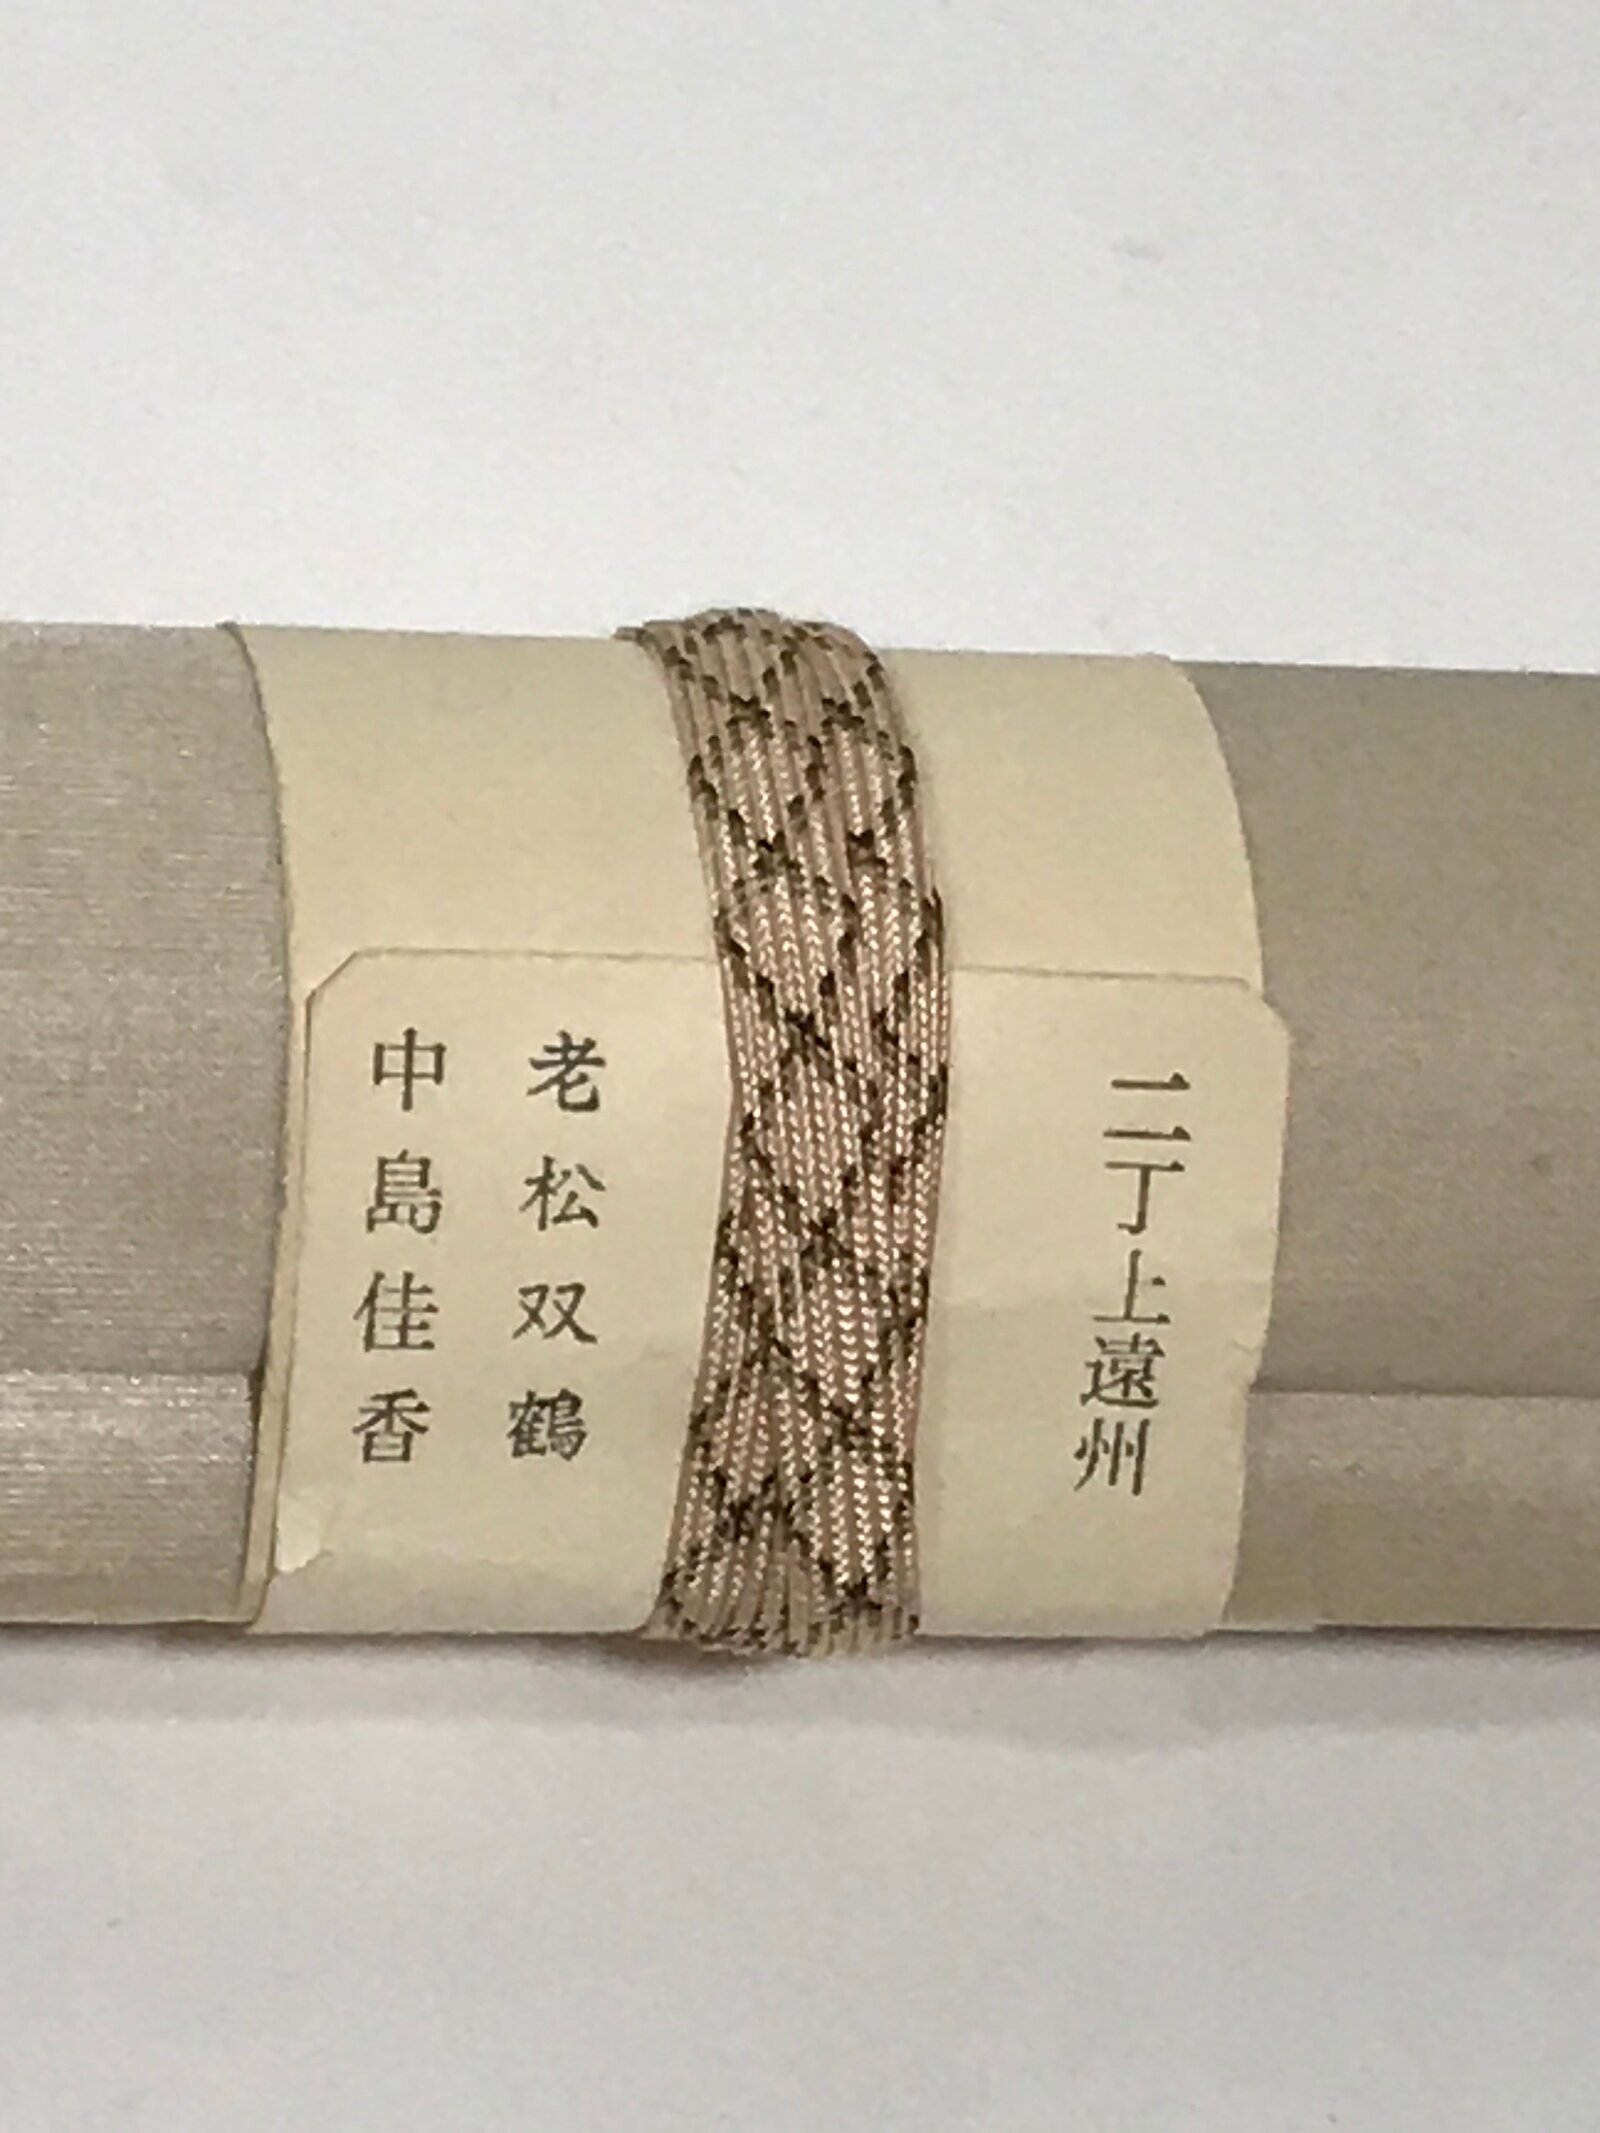 二丁上遠州
老松双鶴
中島佳香